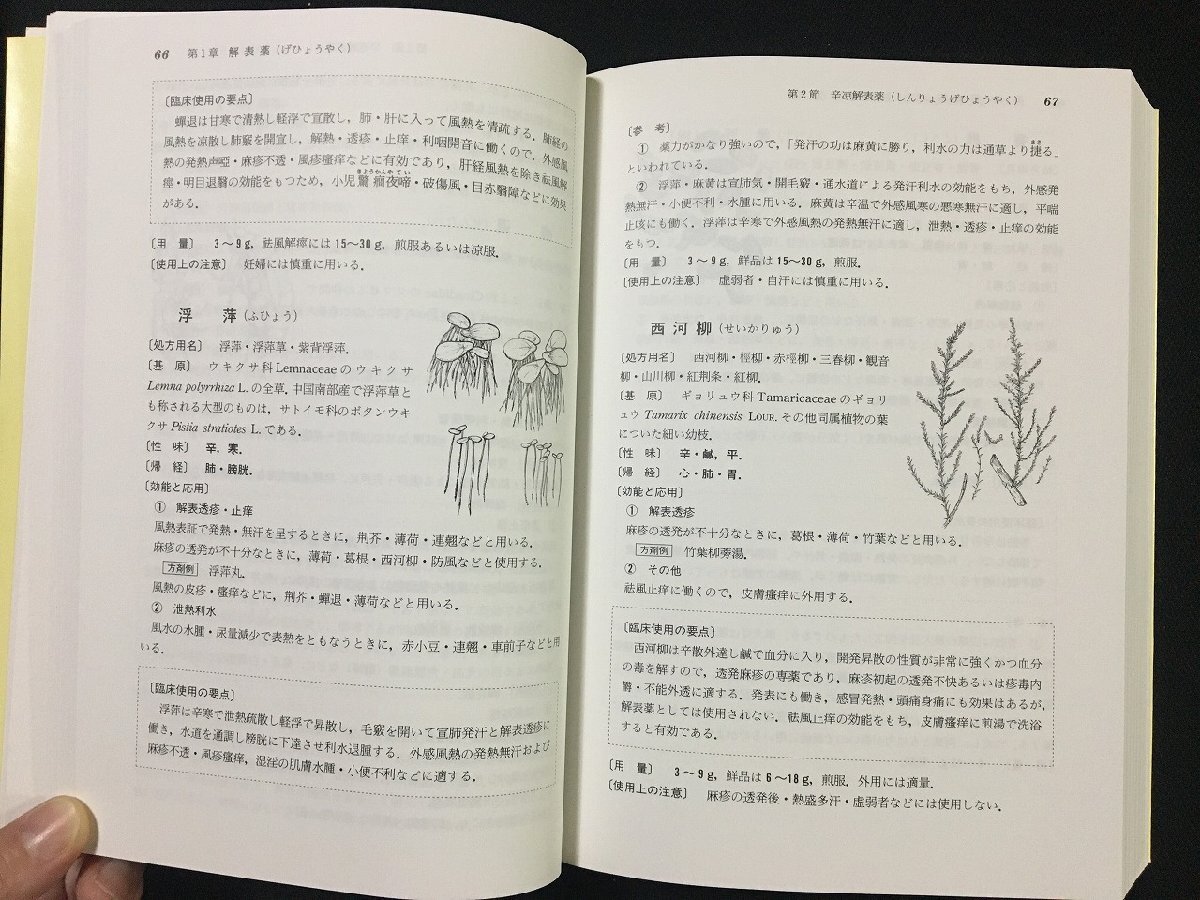 66　第1章　解表薬（げひょうやく）
〔臨床使用の要点〕
蟬退は甘寒で清熱し軽浮で宣散し，肺・肝に入って風熱を清疏する．肺経の
風熱を涼散し肺竅を開宣し，解熱・透疹・止痒・利咽開音に働くので，外感風
熱の発熱声啞・麻疹不透・風疹瘙痒などに有効であり，肝経風熱を除き祛風解
痙・明目退翳の効能をもつため，小児驚癇夜啼・破傷風・目赤翳障などに効果
きょうかんやてい
がある．
〔用　量〕　3～9g，祛風解痙には15～30g，煎服あるいは凉服．
〔使用上の注意〕　妊婦には慎重に用いる．
浮　萍（ふひょう）
〔処方用名〕　浮萍・浮萍草・紫背浮萍．
〔基　原〕　ウキクサ科Lemnaceaeのウキクサ
Lemna polyrrhiza L.の全草．中国南部産で浮萍草と
も称される大型のものは，サトノモ科のボタンウキ
クサPisiia stratiotes L.である．
〔性　味〕　辛，寒．
〔帰　経〕　肺・膀胱．
〔効能と応用〕
①　解表透疹・止痒
風熱表証で発熱・無汗を呈するときに，荆芥・薄荷・連翹などと用いる．
麻疹の透発が不十分なときに，薄荷・葛根・西河柳・防風などと使用する．
方剤例　浮萍丸．
風熱の皮疹・瘙痒などに，荆芥・蟬退・薄荷などと用いる．
②　泄熱利水
風水の水腫・尿量減少で表熱をともなうときに，赤小豆・連翹・車前子などと用
いる．
〔臨床使用の要点〕
浮萍は辛寒で泄熱疏散し軽浮で昇散し，毛竅を開いて宣肺発汗と解表透疹に
働き，水道を通調し膀胱に下達させ利水退腫する．外感風熱の発熱無汗および
麻疹不透・風疹瘙痒，湿淫の肌膚水腫・小便不利などに適する．
第2節　辛涼解表薬（しんりょうげひょうやく）　67
〔参　考〕
①　薬力がかなり強いので，「発汗の功は麻黄に勝り，利水の力は通草より捷る」
まさ
といわれている．
②　浮萍・麻黄は宣肺気・開毛竅・通水道による発汗利水の効能をもち，外感発
熱無汗・小便不利・水腫に用いる．麻黄は辛温で外感風寒の悪寒無汗に適し，平喘
止咳にも働く．浮萍は辛寒で外感風熱の発熱無汗に適し，泄熱・透疹・止痒の効能
をもつ．
〔用　量〕　3～9g．鮮品は15～30g，煎服．
〔使用上の注意〕　虚弱者・自汗には慎重に用いる．
西河柳（せいかりゅう）
〔処方用名〕　西河柳・檉柳・赤檉柳・三春柳・観音
柳・山川柳・紅荆条・紅柳．
〔基　原〕　ギョリュウ科Tamaricaceaeのギョリ
ュウTamarix chinensis LOUR. その他同属植物の葉
についた細い幼枝．
〔性　味〕　辛・鹹，平．
〔帰　経〕　心・肺・胃．
〔効能と応用〕
①　解表透疹
麻疹の透発が不十分なときに，葛根・薄荷・竹葉などと用いる．
方剤例　竹葉柳蒡湯．
②　その他
祛風止痒に働くので，皮膚瘙痒に外用する．
〔臨床使用の要点〕
西河柳は辛散外達し鹹で血分に入り，開発昇散の性質が非常に強くかつ血分
の毒を解すので，透発麻疹の専薬であり．麻疹初起の透発不快あるいは疹毒内
鬱・不能外透に適する．発表にも働き，感冒発熱・頭痛身痛にも効果はあるが，
解表薬としては使用されない．祛風止痒の効能をもち，皮膚瘙痒に煎湯で洗浴
すると有効である．
〔用　量〕　3～9g，鮮品は6～18g，煎服．外用には適量．
〔使用上の注意〕　麻疹の透発後・熱盛多汗・虚弱者などには使用しない．